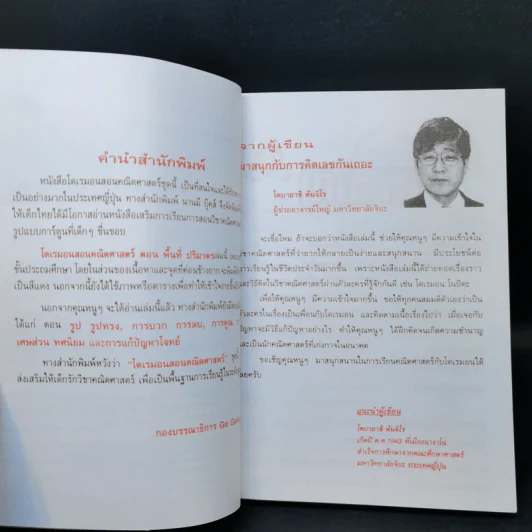 คำนำสำนักพิมพ์
หนังสือโดเรมอนสอนคณิตศาสตร์ชุดนี้ เป็นที่สนใจและได้รับ
เป็นอย่างมากในประเทศญี่ปุ่น ทางสำนักพิมพ์ นานมี บุ๊คส์ จึงจัด
ให้เด็กไทยได้มีโอกาสอ่านหนังสือเสริมการเรียนการสอนวิชาคณิต
รูปแบบการ์ตูนที่เด็กๆ ชื่นชอบ
โดเรมอนสอนคณิตศาสตร์ ตอน พื้นที่ ปริมาตร เล่มนี้
ชั้นประถมศึกษา โดยในส่วนของเนื้อหาและจุดที่ค่อนข้างยาก
เป็นสีแดง นอกจากนี้ยังได้ใช้ภาพหรือตารางเพื่อทำให้เข้าใจ
นอกจากคุณหนูๆ จะได้อ่านเล่มนี้แล้ว ทางสำนักพิมพ์
ได้แก่ ตอน รูป รูปทรง, การบวก การลบ, การคูณ
เศษส่วน ทศนิยม และการแก้ปัญหาโจทย์
ทางสำนักพิมพ์หวังว่า "โดเรมอนสอนคณิตศาสตร์"
ส่งเสริมให้เด็กรักวิชาคณิตศาสตร์ เพื่อเป็นพื้นฐานการเรียนรู้
กองบรรณาธิการ
จากผู้เขียน
มาสนุกกับการคิดเลขกันเถอะ
โคบายาชิ คันจิโร
ผู้ช่วยอาจารย์ใหญ่ มหาวิทยาลัยจิบะ
จะเชื่อไหม ถ้าจะบอกว่าหนังสือเล่มนี้ ช่วยให้คุณหนูๆ มีความเข้าใจใน
วิชาคณิตศาสตร์ที่ว่ายากให้กลายเป็นง่ายและสนุกสนาน มีประโยชน์ต่อ
การเรียนรู้ในชีวิตประจำวันมากขึ้น เพราะหนังสือเล่มนี้ได้ถ่ายทอดเรื่องราว
และวิธีคิดในวิชาคณิตศาสตร์ผ่านตัวละครที่รู้จักกันดี เช่น โดเรมอน โนบิตะ
เพื่อให้คุณหนูๆ มีความเข้าใจมากขึ้น ขอให้ทุกคนสมมติตัวเองว่าเป็น
ตัวละครในเรื่องเป็นเพื่อนกับโดเรมอน และคิดตามเนื้อเรื่องไปว่า เมื่อเจอกับ
ปัญหาจะมีวิธีแก้ปัญหาอย่างไร ทำให้คุณหนูๆ ได้ฝึกคิดจนเกิดความชำนาญ
และเป็นนักคณิตศาสตร์ที่เก่งกาจในอนาคต
ขอเชิญคุณหนูๆ มาสนุกสนานในการเรียนคณิตศาสตร์กับโดเรมอนได้
เลยครับ
แนะนำผู้เขียน
โคบายาชิ คันจิโร
เกิดปี ค.ศ.1943 ที่เมืองนางาโน
สำเร็จการศึกษาจากคณะศึกษาศาสตร์
มหาวิทยาลัยจิบะ ประเทศญี่ปุ่น